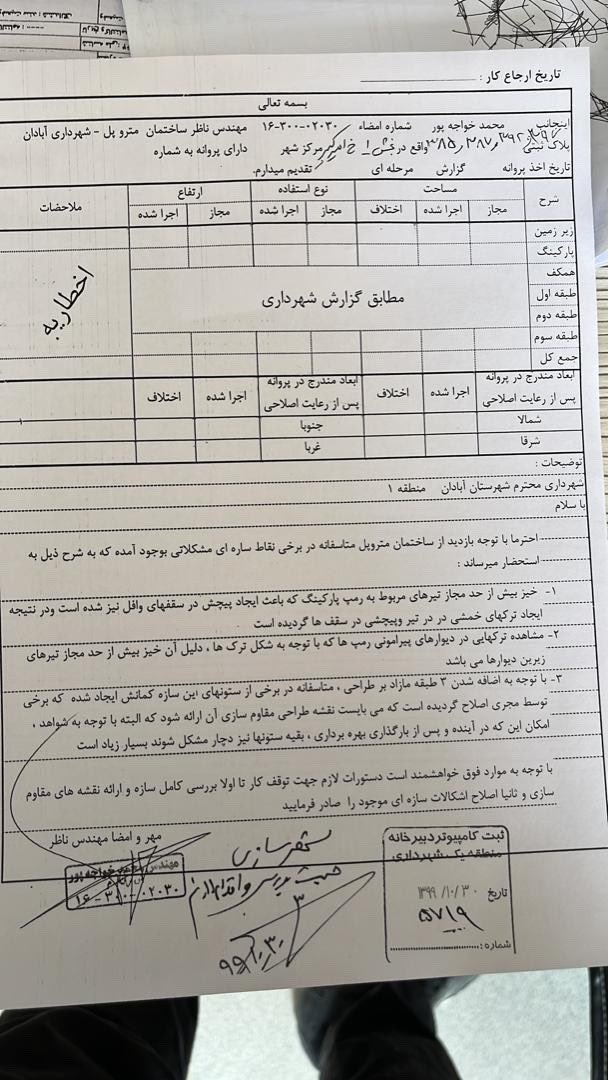 تاریخ ارجاع کار :
بسمه تعالی
اینجانب محمد خواجه پور شماره امضاء ۰۲۰۳۰-۳۰۰-۱۶ مهندس ناظر ساختمان مترو پل - شهرداری آبادان
پلاک ثبتی واقع در بخش ۱ خ امیرکبیر مرکز شهر دارای پروانه به شماره
تاریخ اخذ پروانه گزارش مرحله ای تقدیم میدارم.
شرح مساحت نوع استفاده ارتفاع ملاحضات
مجاز اجرا شده اختلاف مجاز اجرا شده مجاز اجرا شده
زیر زمین
پارکینگ
همکف
طبقه اول
مطابق گزارش شهرداری
اخطاریه
طبقه دوم
طبقه سوم
جمع کل
ابعاد مندرج در پروانه پس از رعایت اصلاحی اجرا شده اختلاف ابعاد مندرج در پروانه پس از رعایت اصلاحی اجرا شده اختلاف
شمالا جنوبا
شرقا غربا
توضیحات :
شهرداری محترم شهرستان آبادان منطقه ۱
با سلام
احترما با توجه بازدید از ساختمان متروپل متاسفانه در برخی نقاط سازه ای مشکلاتی بوجود آمده که به شرح ذیل به
استحضار میرساند :
۱- خیز بیش از حد مجاز تیرهای مربوط به رمپ پارکینگ که باعث ایجاد پیچش در سقفهای وافل نیز شده است ودر نتیجه
ایجاد ترکهای خمشی در در تیر وپیچشی در سقف ها گردیده است
۲- مشاهده ترکهایی در دیوارهای پیرامونی رمپ ها که با توجه به شکل ترک ها ، دلیل آن خیز بیش از حد مجاز تیرهای
زیرین دیوارها می باشد
۳- با توجه به اضافه شدن ۳ طبقه مازاد بر طراحی ، متاسفانه در برخی از ستونهای این سازه کمانش ایجاد شده که برخی
توسط مجری اصلاح گردیده است که می بایست نقشه طراحی مقاوم سازی آن ارائه شود که البته با توجه به شواهد ،
امکان این که در آینده و پس از بارگذاری بهره برداری ، بقیه ستونها نیز دچار مشکل شوند بسیار زیاد است
با توجه به موارد فوق خواهشمند است دستورات لازم جهت توقف کار تا اولا بررسی کامل سازه و ارائه نقشه های مقاوم
سازی و ثانیا اصلاح اشکالات سازه ای موجود را صادر فرمایید
مهر و امضا مهندس ناظر
مهندس محمد خواجه پور
۱۶-۳۰۰-۰۲۰۳۰
جهت بررسی و اقدام لازم
۹۹/۱۰/۳۰
ثبت کامپیوتر دبیرخانه
منطقه یک شهرداری
تاریخ ۱۳۹۹/۱۰/۳۰
۵۷۱۹
شماره :